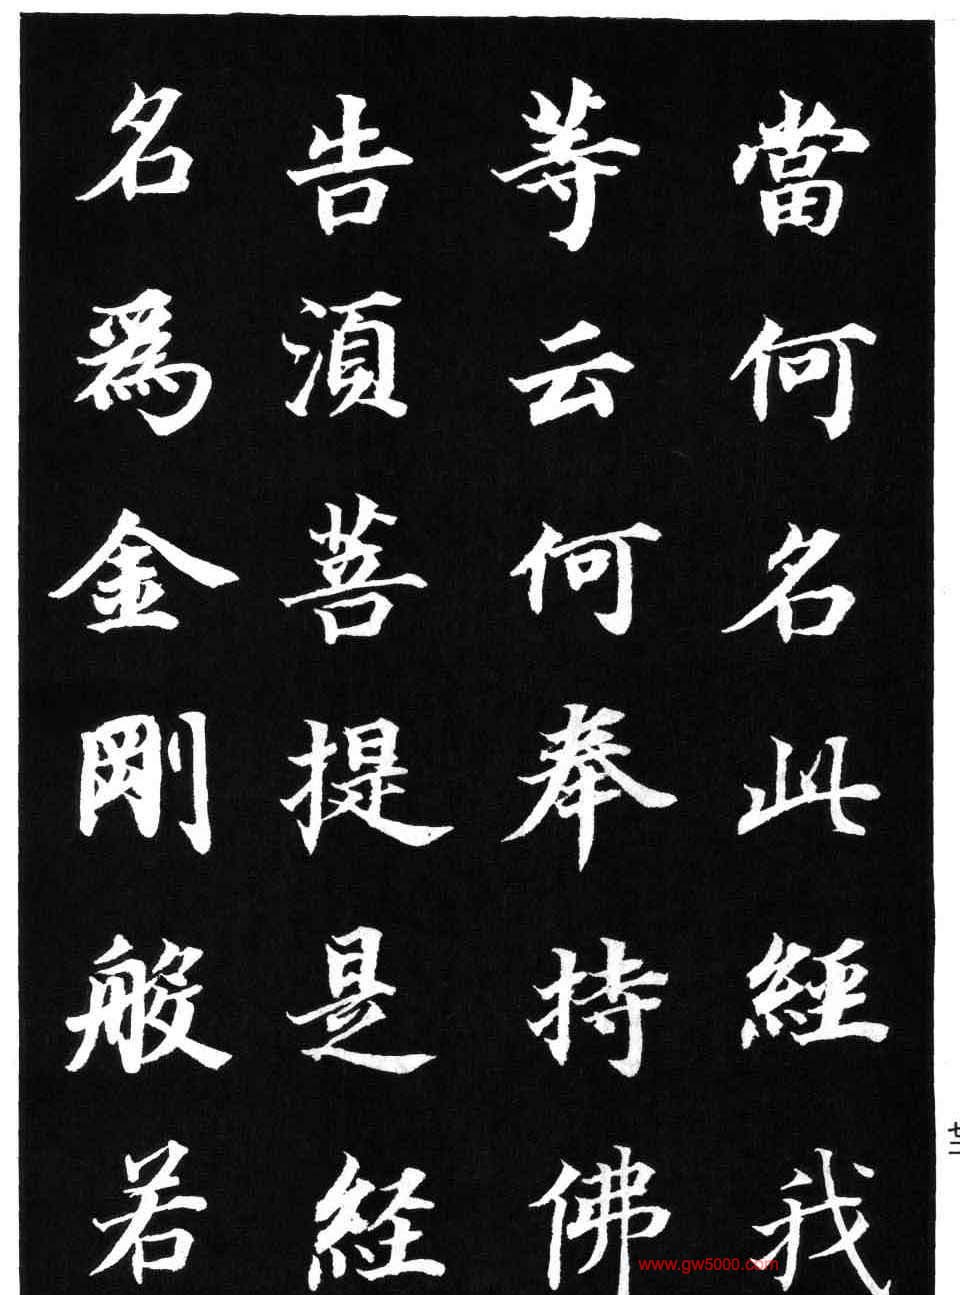 當何名此經我
等云何奉持佛
告湏菩提是経
名為金剛般若
七二
www.gw5000.com